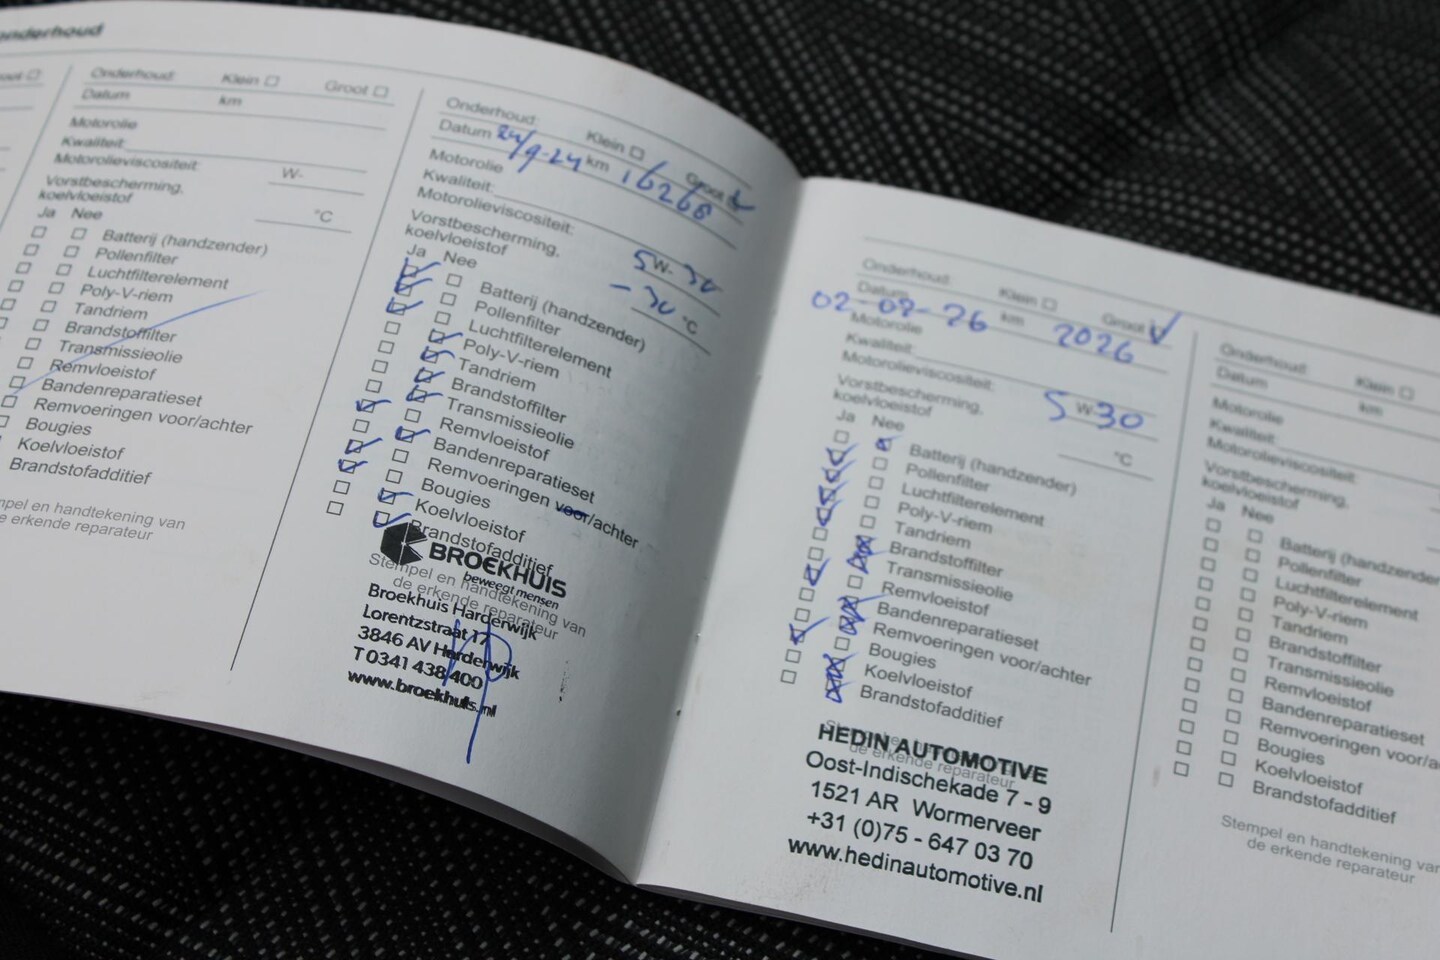 onderhoud
Onderhoud: Klein Groot
Datum km
Motorolie
Kwaliteit:
Motorolieviscositeit: W-
Vorstbescherming,
koelvloeistof °C
Ja Nee
Batterij (handzender)
Pollenfilter
Luchtfilterelement
Poly-V-riem
Tandriem
Brandstoffilter
Transmissieolie
Remvloeistof
Bandenreparatieset
Remvoeringen voor/achter
Bougies
Koelvloeistof
Brandstofadditief
mpel en handtekening van
de erkende reparateur
Onderhoud: Klein Groot
Datum 24/9-24 km 16268
Motorolie
Kwaliteit:
Motorolieviscositeit: 5W-30
Vorstbescherming,
koelvloeistof -30 °C
Ja Nee
Batterij (handzender)
Pollenfilter
Luchtfilterelement
Poly-V-riem
Tandriem
Brandstoffilter
Transmissieolie
Remvloeistof
Bandenreparatieset
Remvoeringen voor/achter
Bougies
Koelvloeistof
Brandstofadditief
BROEKHUIS
beweegt mensen
Stempel en handtekening van
de erkende reparateur
Broekhuis Harderwijk
Lorentzstraat 17
3846 AV Harderwijk
T 0341 438 400
www.broekhuis.nl
Onderhoud: Klein Groot
Datum 02-02-26 km 2026
Motorolie
Kwaliteit:
Motorolieviscositeit: 5W-30
Vorstbescherming,
koelvloeistof °C
Ja Nee
Batterij (handzender)
Pollenfilter
Luchtfilterelement
Poly-V-riem
Tandriem
Brandstoffilter
Transmissieolie
Remvloeistof
Bandenreparatieset
Remvoeringen voor/achter
Bougies
Koelvloeistof
Brandstofadditief
de erkende reparateur
HEDIN AUTOMOTIVE
Oost-Indischekade 7 - 9
1521 AR Wormerveer
+31 (0)75 - 647 03 70
www.hedinautomotive.nl
Onderhoud: Klein
Datum km
Motorolie
Kwaliteit:
Motorolieviscositeit:
Vorstbescherming,
koelvloeistof
Ja Nee
Batterij (handzender
Pollenfilter
Luchtfilterelement
Poly-V-riem
Tandriem
Brandstoffilter
Transmissieolie
Remvloeistof
Bandenreparatieset
Remvoeringen voor/a
Bougies
Koelvloeistof
Brandstofadditief
Stempel en handtekening van
de erkende reparateur